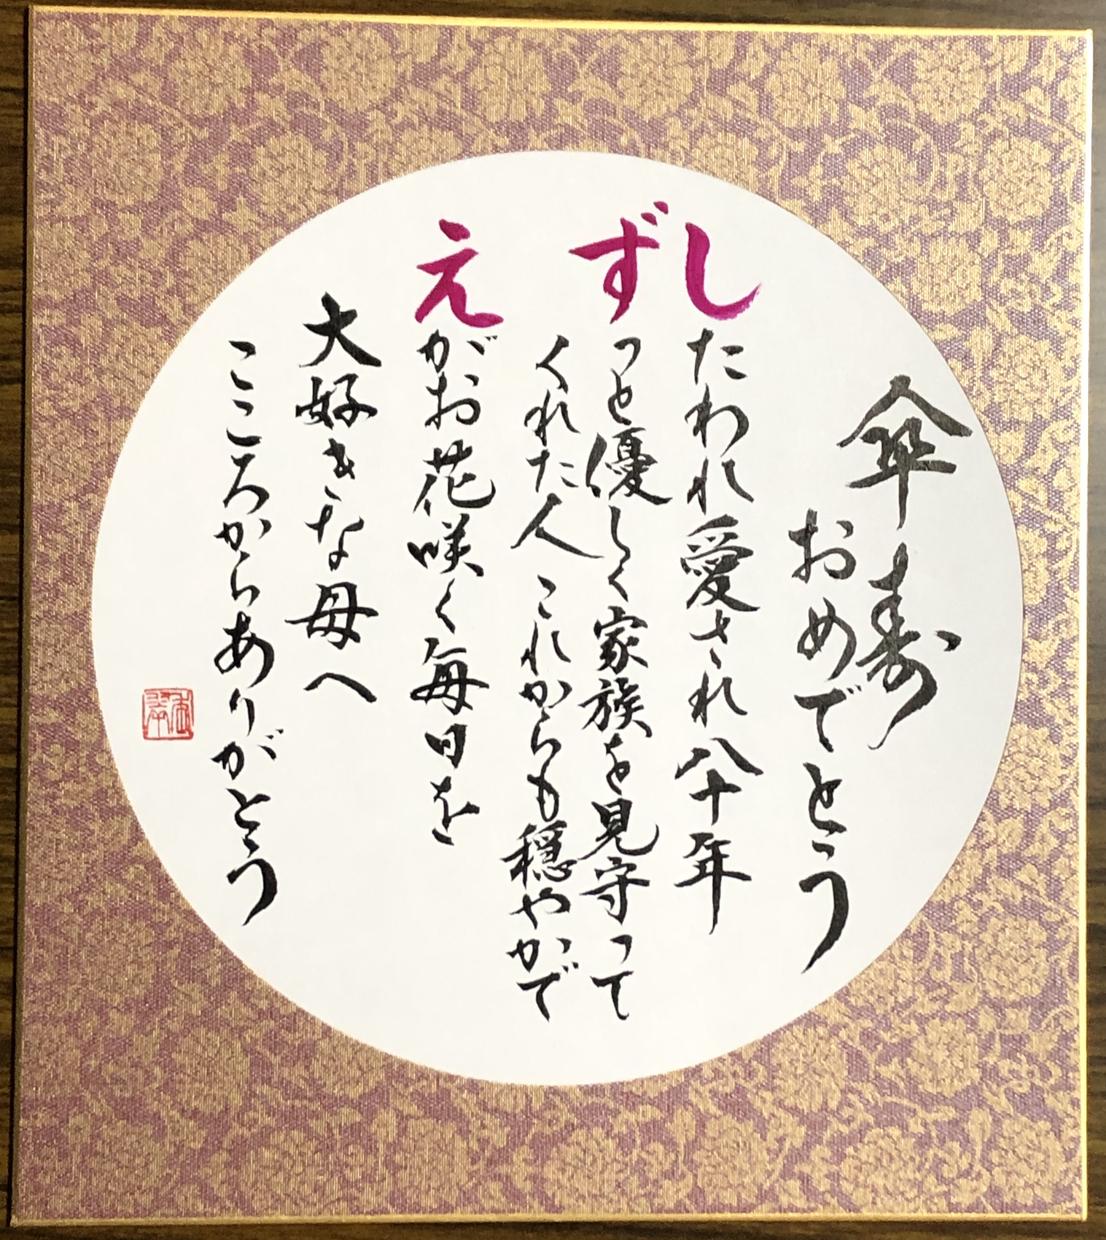 傘寿
おめでとう
したわれ愛され八十年
ずっと優しく家族を見守って
くれた人 これからも穏やかで
えがお花咲く毎日を
大好きな母へ
こころからありがとう